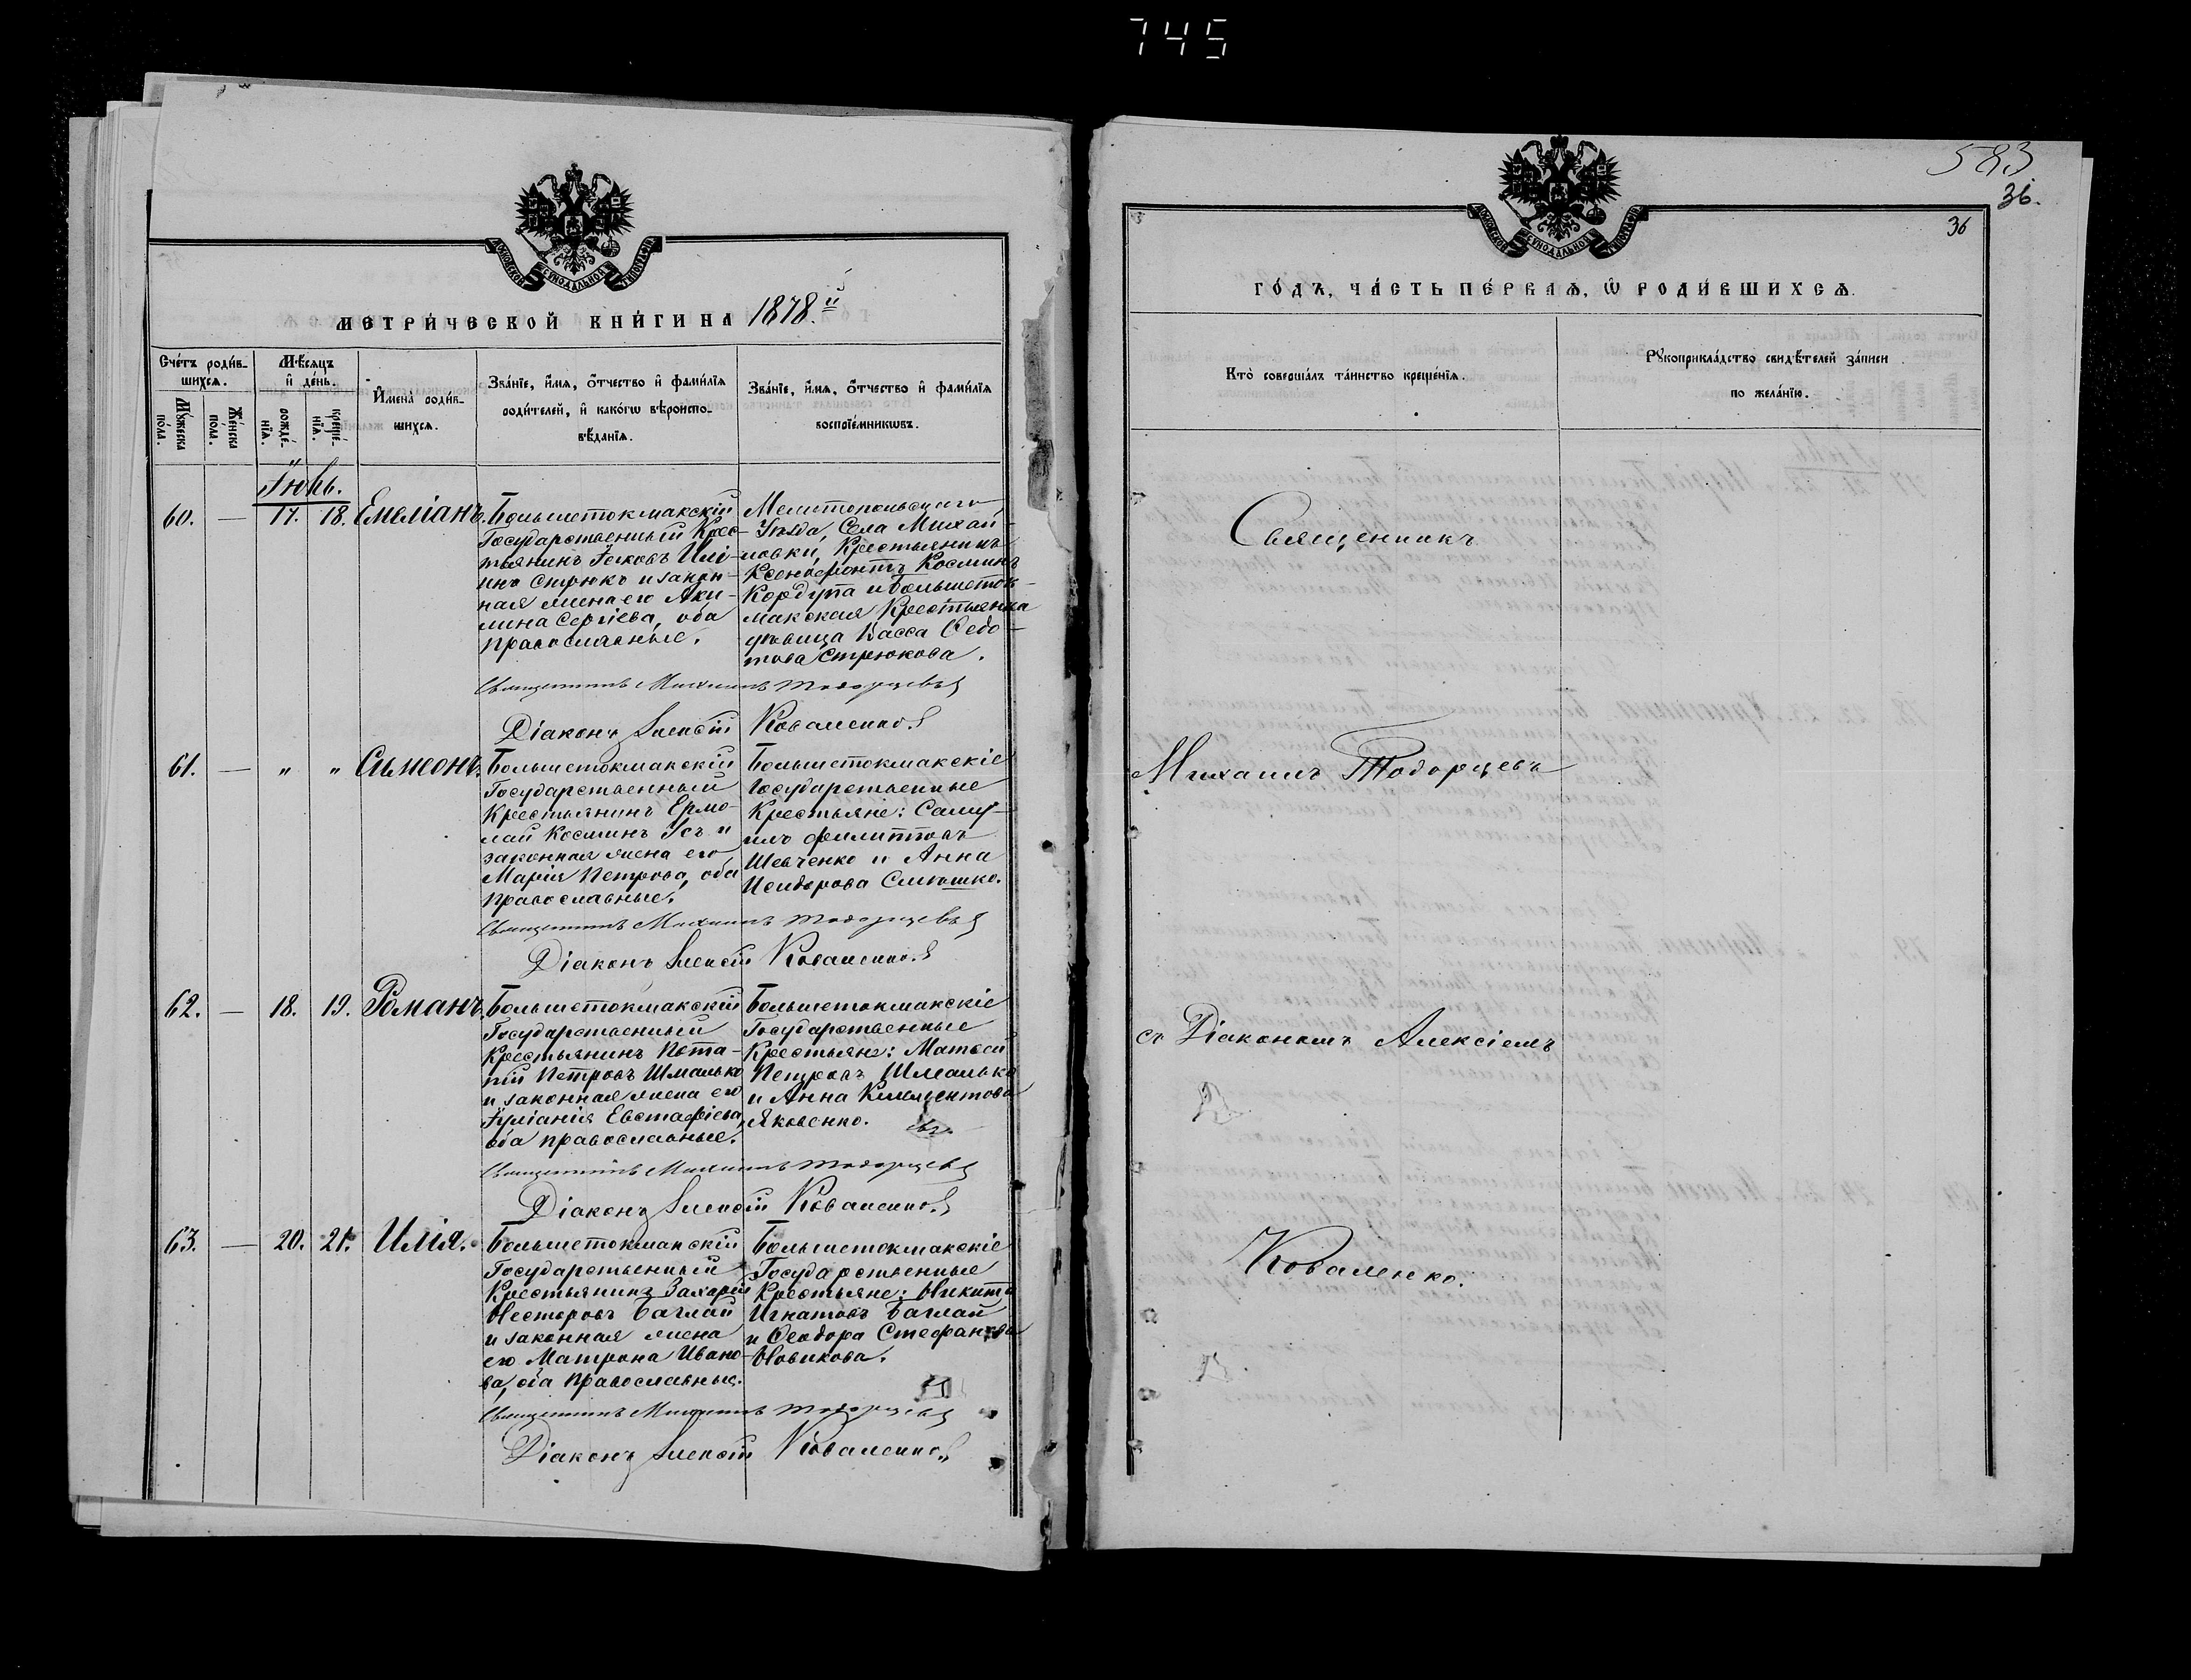 745
583
36.
36
МОСКОВСКОЙ СѴНОДАЛЬНОЙ ТИПОГРАФІИ
МЕТРИ́ЧЕСКОЙ КНИ́ГИ НА 1878.й
Сче́тъ роди́в-
шихсѧ.
Мꙋ́жеска
по́ла.
Же́нска
по́ла.
Мѣ́сѧцъ
и҆ де́нь.
рожде́-
нїѧ.
креще́-
нїѧ.
И҆мена̀ роди́в-
шихсѧ.
Зва́нїе, и҆́мѧ, ѻ҆́тчество и҆ фами́лїѧ
роди́телей, и҆ како́гѡ вѣроиспо-
вѣ́данїѧ.
Зва́нїе, и҆́мѧ, ѻ҆́тчество и҆ фами́лїѧ
воспрїе́мникѡвъ.
Іюнь.
60. — 17. 18. Емеліанъ.
Большетокмакскій
Государственный Крес-
тьянинъ Іяковъ Илі-
инъ Стрюкъ и закон-
ная жена его Аки-
лина Сергіева, оба
православные.
Мелитопольскаго
Уѣзда, Села Михай-
ловки, Крестьянинъ
Ксенофонтъ Косминъ
Кордупа и большеток-
макская Крестьянка
дѣвица Васса Ѳедо-
това Стрюкова.
Священникъ Михаилъ Тодорцевъ
Діаконъ Алексій Коваленко.
61. — " " Сѵмеонъ.
Большетокмакскій
Государственный
Крестьянинъ Ермо-
лай Косминъ Усъ и
законная жена его,
Марія Петрова, оба
православные.
Большетокмакскіе
Государственные
Крестьяне: Саму-
илъ Филипповъ
Шевченко и Анна
Исидорова Слюшко.
Священникъ Михаилъ Тодорцевъ
Діаконъ Алексій Коваленко.
62. — 18. 19. Романъ.
Большетокмакскій
Государственный
Крестьянинъ Пота-
пій Петровъ Шмалько
и законная жена его
Іуліанія Евстафіева,
оба православные.
Большетокмакскіе
Государственные
Крестьяне: Матѳей
Петровъ Шмалько
и Анна Климентова
Яковенко.
Священникъ Михаилъ Тодорцевъ
Діаконъ Алексій Коваленко.
63. — 20. 21. Илія.
Большетокмакскій
Государственный
Крестьянинъ Захарій
Несторовъ Баглай
и законная жена
его Матрона Ивано-
ва, оба православные.
Большетокмакскіе
Государственные
Крестьяне: Никита
Игнатовъ Баглай
и Ѳеодора Стефанова
Новикова.
Священникъ Михаилъ Тодорцевъ
Діаконъ Алексій Коваленко.
МОСКОВСКОЙ СѴНОДАЛЬНОЙ ТИПОГРАФІИ
ГО́ДЪ, ЧА́СТЬ ПЕ́РВАѦ, Ѡ҆ РОДИ́ВШИХСѦ.
Кто̀ соверша́лъ та́инство креще́нїѧ.
Рꙋкоприкла́дство свидѣ́телей за́писи
по жела́нїю.
Священникъ
Михаилъ Тодорцевъ
съ Діакономъ Алексіемъ
Коваленко.